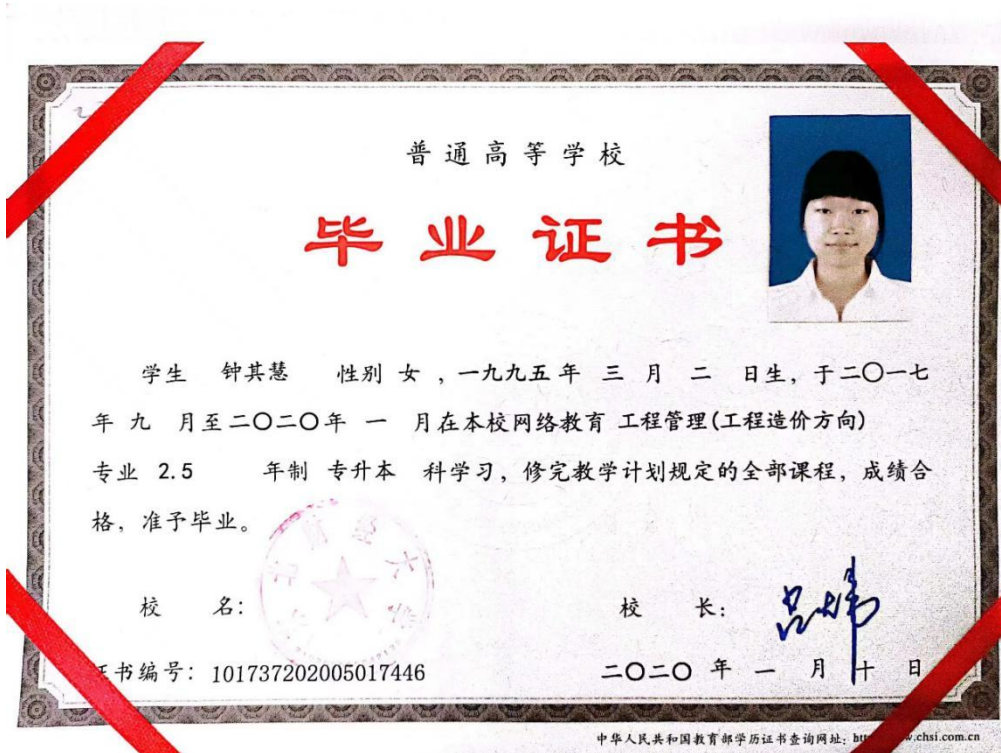 普通高等学校
毕业证书
学生 钟其慧 性别 女 ，一九九五 年 三 月 二 日生，于二〇一七
年 九 月至二〇二〇年 一 月在本校网络教育 工程管理(工程造价方向)
专业 2.5 年制 专升本 科学习，修完教学计划规定的全部课程，成绩合
格，准予毕业。
财经大
校 名：
校 长：
书编号：101737202005017446
二〇二〇 年 一 月 十 日
中华人民共和国教育部学历证书查询网址：.chsi.com.cn